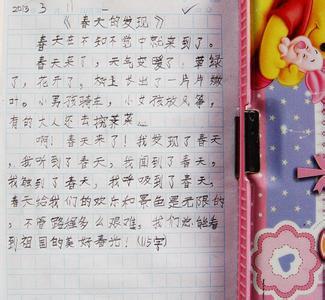 2013 3
《春天的发现》
春天在不知不觉中就来到了。
春天来了,天气变暖了,草绿
了,花开了,树上长出了一片片嫩
叶。小男孩骑车,小女孩放风筝,
有的大人还去挖荠菜。
啊!春天来了!我发现了春天
,我听到了春天,我闻到了春天,
我触到了春天,我呼吸到了春天,
春天给我们的欢乐和景色是无限的
,不管路途多么艰难,我们总能看
到祖国的美好春光!(115字)